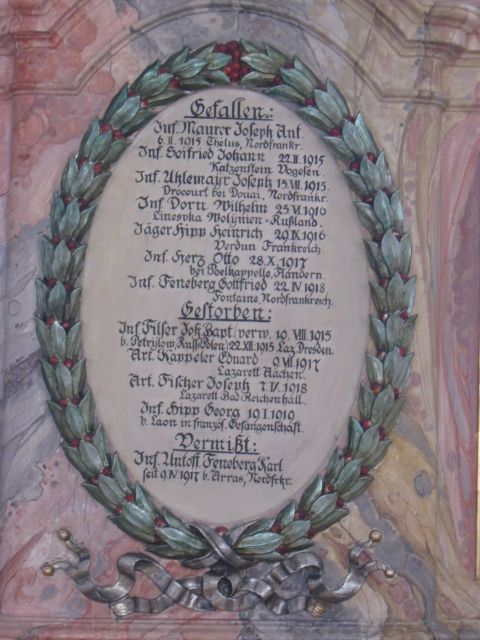 Gefallen.:
Inf. Maurer Joseph Ant.
6.II.1915 Thelus, Nordfrankr.
Inf. Seifried Johann 22.II.1915
Katzenstein Vogesen
Inf. Uhlemayr Joseph 15.VII.1915.
Drocourt bei Douai, Nordfrankr.
Inf. Dorn Wilhelm 25.VI.1916
Linesvka Wolynien-Rußland.
Jäger Hipp Heinrich 29.IX.1916
Verdun Frankreich.
Inf. Herz Otto 28.X.1917
bei Poelkappelle, Flandern
Inf. Feneberg Gottfried 22.IV.1918
Fontaine, Nordfrankreich.
Gestorben:
Inf. Filser Joh. Bapt. verw. 10.VIII.1915
b. Petrijlow, Russ. Polen, 22.XII.1915 Laz. Dresden
Art. Kappeler Eduard 9.VII.1917
Lazarett Aachen.
Art. Fischer Joseph 7.IV.1918
Lazarett Bad Reichenhall.
Inf. Hipp Georg 19.I.1919
b. Laon in französ. Gefangenschaft.
Vermißt:
Inf. Antoff Feneberg Karl
seit 9.IV.1917 b. Arras, Nordfrkr.